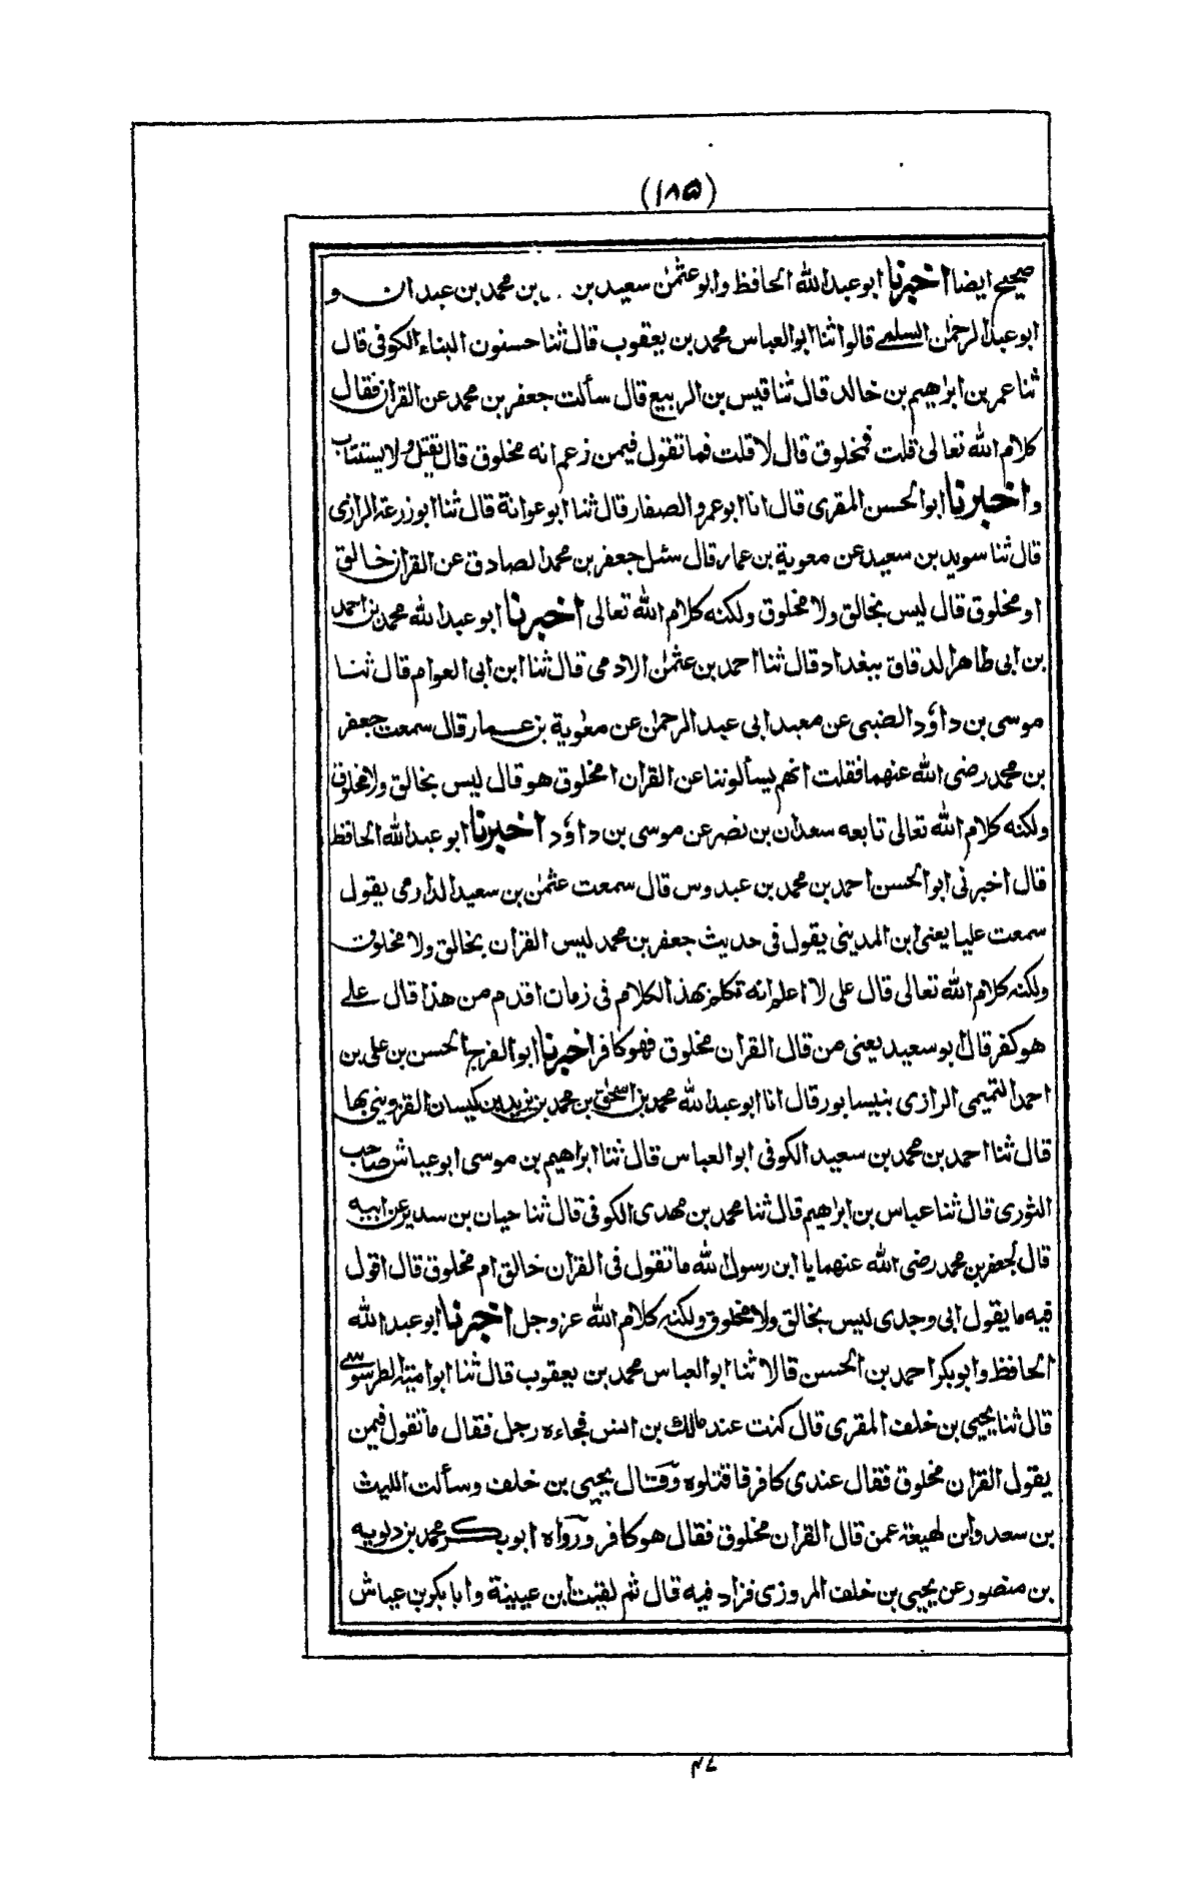 (١٨۵)
صحيح ايضا اخبرنا ابو عبد الله الحافظ وابو عثمٰن سعيد بن بن محمد بن عبدان و
ابو عبد الرحمٰن السلمے قالوا ثنا ابو العباس محمد بن يعقوب قال ثنا حسنون البناء الكوفى قال
ثنا عمر بن ابراهيم بن خالد قال ثنا قيس بن الربيع قال سألت جعفر بن محمد عن القراٰن فقال
كلام الله تعالى قلت فمخلوق قال لا قلت فما تقول فيمن زعم انه مخلوق قال يقتل ولا يستتاب
واخبرنا ابو الحسن المقرى قال انا ابو عمرو الصفار قال ثنا ابو عوانة قال ثنا ابو زرعة الرازى
قال ثنا سويد بن سعيد عن معوية بن عمار قال سئل جعفر بن محمد الصادق عن القراٰن خالق
او مخلوق قال ليس بخالق ولا مخلوق ولكنه كلام الله تعالى اخبرنا ابو عبد الله محمد بن احمد
بن ابى طاهر الدقاق ببغداد قال ثنا احمد بن عثمٰن الادمى قال ثنا ابن ابى العوام قال ثنا
موسى بن داؤد الضبى عن معبد ابى عبد الرحمٰن عن معٰوية بن عمار قال سمعت جعفر
بن محمد رضى الله عنهما فقلت انهم يسألوننا عن القراٰن امخلوق هو قال ليس بخالق ولا مخلوق
ولكنه كلام الله تعالى تابعه سعدان بن نصر عن موسى بن داؤد اخبرنا ابو عبد الله الحافظ
قال اخبرنى ابو الحسن احمد بن محمد بن عبدوس قال سمعت عثمٰن بن سعيد الدارمى يقول
سمعت عليا يعنى ابن المدينى يقول فى حديث جعفر بن محمد ليس القراٰن بخالق ولا مخلوق
ولكنه كلام الله تعالى قال على لا اعلم انه تكلم بهذا الكلام فى زمان اقدم من هذا قال علے
هو كفر قال ابو سعيد يعنى من قال القراٰن مخلوق فهو كافر اخبرنا ابو الفرج الحسن بن على بن
احمد التميمى الرازى بنيسابور قال انا ابو عبد الله محمد بن اسحٰق بن محمد بن يزيد بن كيسان القزوينى بها
قال ثنا احمد بن محمد بن سعيد الكوفى ابو العباس قال ثنا ابراهيم بن موسى ابو عياش صاحب
الثورى قال ثنا عباس بن ابراهيم قال ثنا محمد بن مهدى الكوفى قال ثنا حيان بن سدير عن ابيه
قال لجعفر بن محمد رضى الله عنهما يا ابن رسول الله ما تقول فى القراٰن خالق ام مخلوق قال اقول
فيه ما يقول ابى وجدى ليس بخالق ولا مخلوق ولكنه كلام الله عز وجل اخبرنا ابو عبد الله
الحافظ وابو بكر احمد بن الحسن قالا ثنا ابو العباس محمد بن يعقوب قال ثنا ابو امية الطرسوسے
قال ثنا يحيى بن خلف المقرى قال كنت عند مالك بن انس فجاءه رجل فقال ما تقول فيمن
يقول القراٰن مخلوق فقال عندى كافر فاقتلوه وقال يحيى بن خلف وسألت الليث
بن سعد وابن لهيعة عمن قال القراٰن مخلوق فقال هو كافر ورواه ابو بكر محمد بن دلويه
بن منصور عن يحيى بن خلف المروزى فزاد فيه قال ثم لقيت ابن عيينة وابا بكر بن عياش